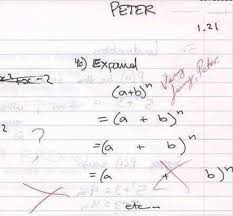 PETER
1.21
4c) Expand
(a+b)^n
Very funny, Peter.
= (a + b)^n
?
= (a + b)^n
= (a + b)^n
etc...